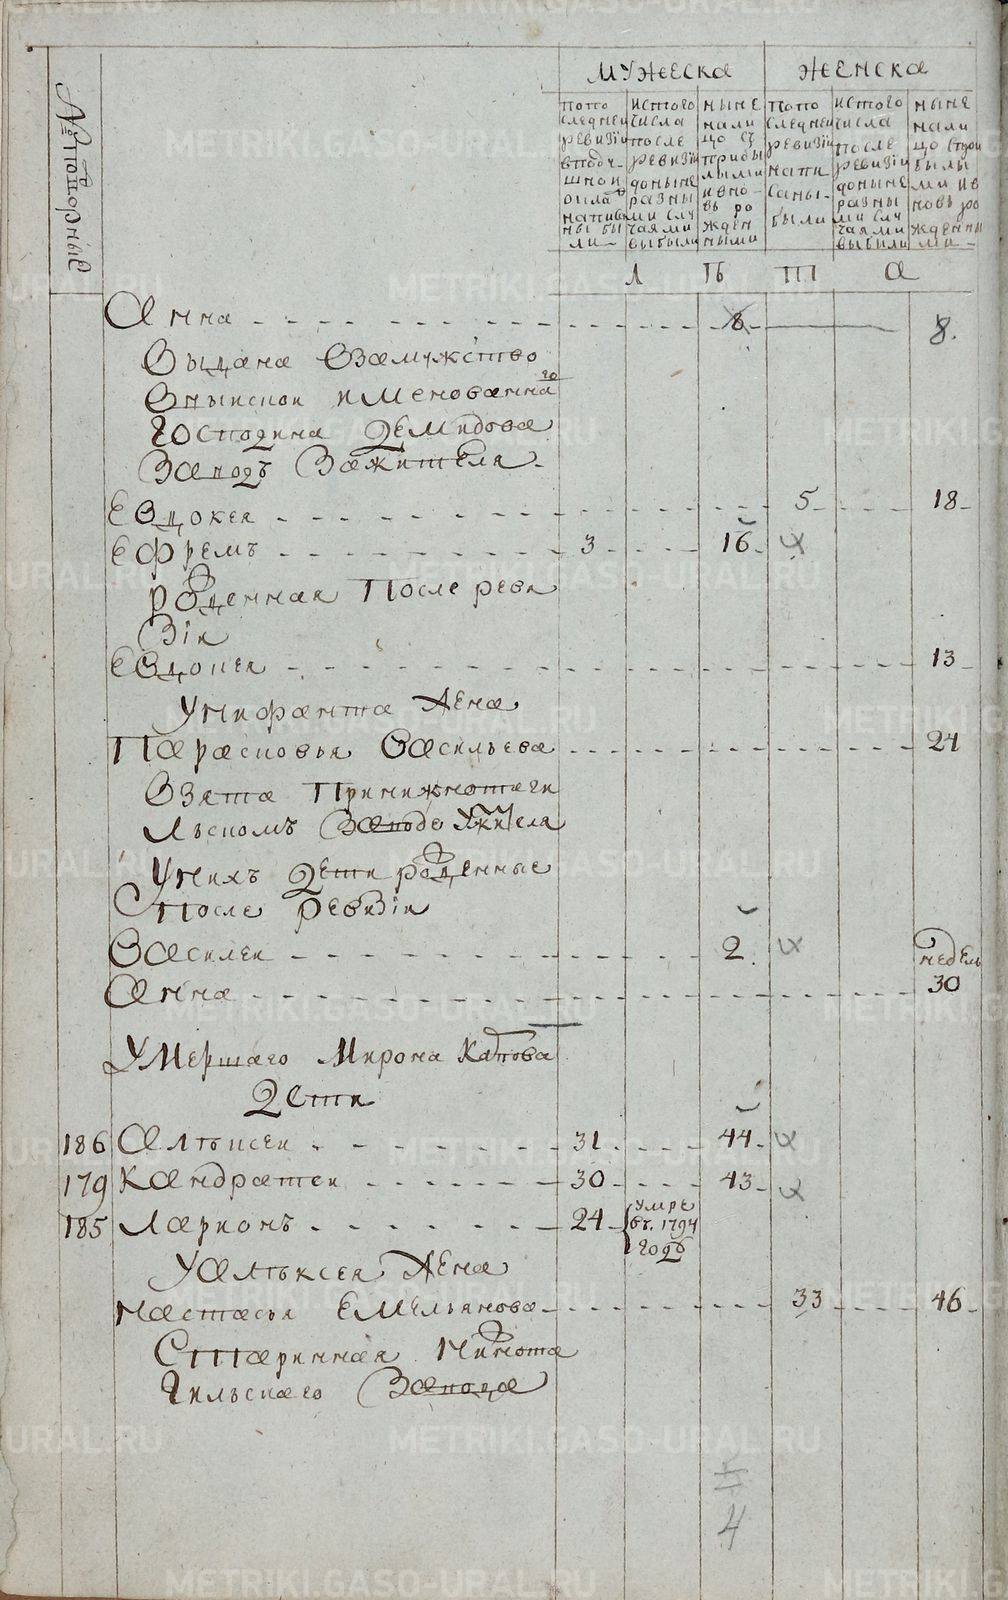 № подворные
МУЖЕСКА
ЖЕНСКА
попо следней ревизіи вподушной окладъ написаны были
истого числа после ревизіи доныне разными случаями выбыли
ныне налицо съ прибылыми ивновь рожденными
попо следней ревизіи написаны были
истого числа после ревизіи доныне разными случаями выбыли
ныне налицо стеми былыми ивновь рожденными
Л Ѣ Т А
Анна 8 8.
Выдана Взамужство
Вныжной именованнаго
Господина Демидова
Заводъ Зажителя
Евдокея 5 18
Ефремъ 3 16
рожденная После реви
Зіи
Евдокея 13
Унифанта Жена
Парасковья Васильева 24
Взята Принижнотаги
льскомъ Заводе Жителя
Унихъ Дети рожденные
После ревизіи
Василеи 2
недель
Анна 30
Умершаго Мирона Катова
Дети
186 Алѣксеи 31 44
179 Кандратеи 30 43
185 Ларионъ 24 умре въ 1794 годѣ
УАлѣксея Жена
Настасья Емельянова 33 46
Старинная Нижнота
гильскаго Завода
4
METRIKI.GASO-URAL.RU